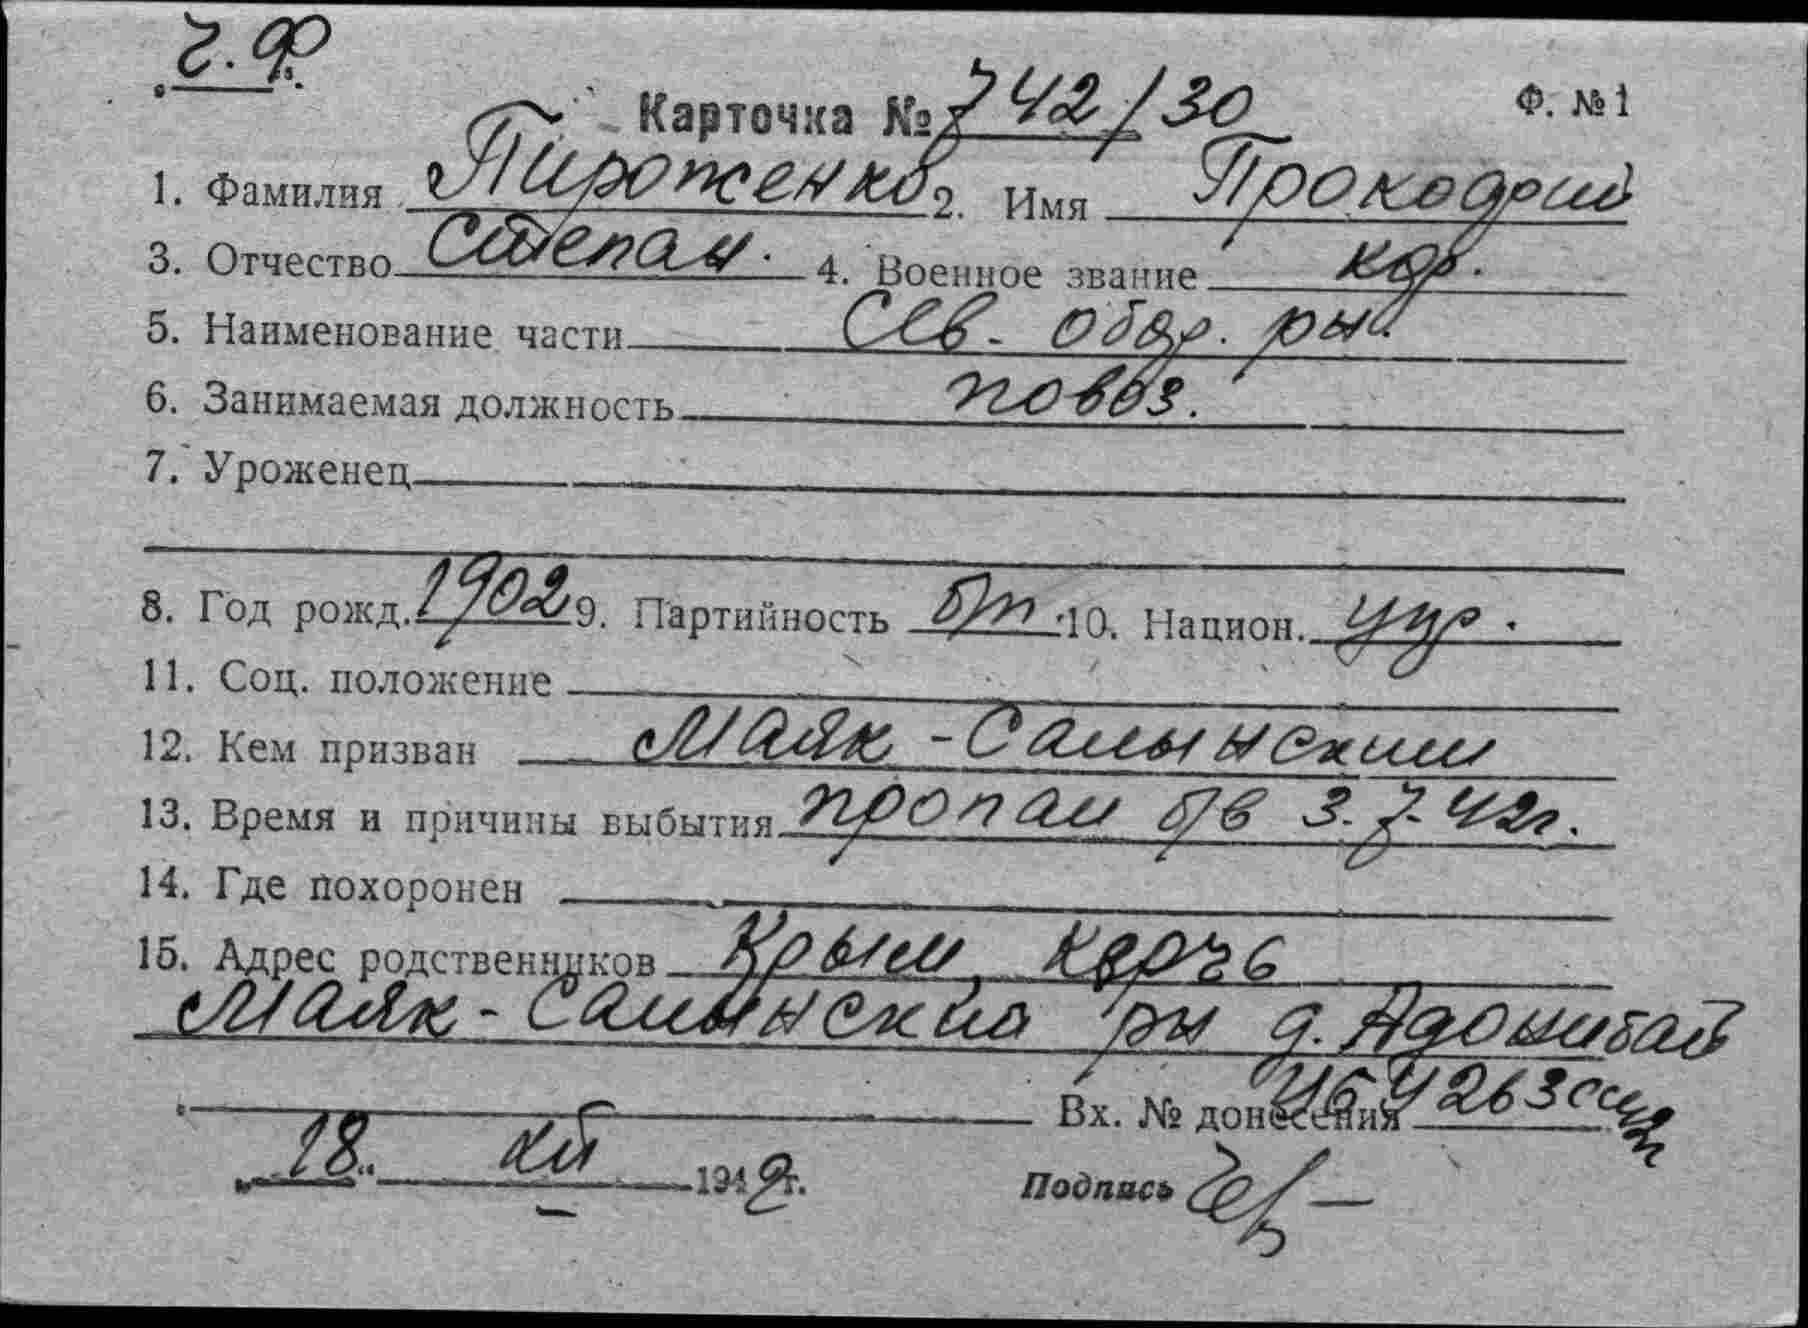 ч.ф.
Карточка № 742/30 Ф. №1
1. Фамилия Пироженко 2. Имя Прокофий
3. Отчество Степан. 4. Военное звание кфр.
5. Наименование части Сев. обор. рн.
6. Занимаемая должность повоз.
7. Уроженец
8. Год рожд. 1902 9. Партийность б/п 10. Национ. укр.
11. Соц. положение
12. Кем призван Маяк-Салынским
13. Время и причины выбытия пропал б/в 3.7.42г.
14. Где похоронен
15. Адрес родственников Крым, Керчь
Маяк-Салынский рн д.
Вх. № донесения
18 XII 1942г. Подпись